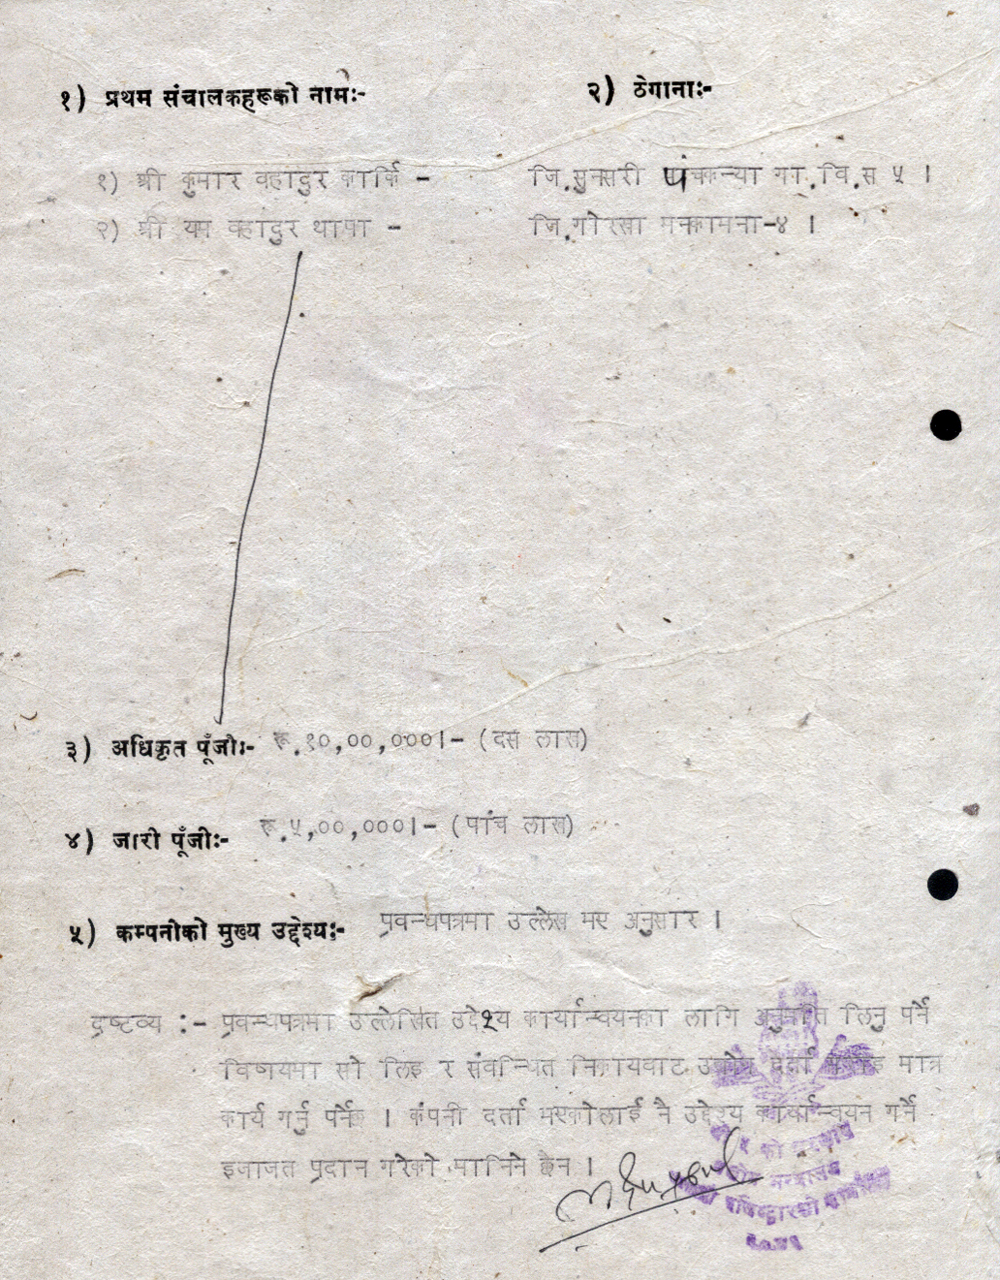 १) प्रथम संचालकहरूको नामः-
२) ठेगानाः-
१) श्री कुमार वहादुर कार्कि -
जि.सुनसरी पांचकन्या गा.वि.स ५ ।
२) श्री यम वहादुर थापा -
जि.गोरखा मनकामना-४ ।
३) अधिकृत पूँजीः- रू.१०,००,०००।- (दस लाख)
४) जारी पूँजीः- रू.५,००,०००।- (पांच लाख)
५) कम्पनीको मुख्य उद्देश्यः- प्रवन्धपत्रमा उल्लेख भए अनुसार ।
द्रष्टव्य :- प्रवन्धपत्रमा उल्लेखित उदेश्य कार्यान्वयनका लागि अनुमति लिनु पर्ने
विषयमा सो लिइ र संवन्धित निकायवाट उद्योग दर्ता गराइ मात्र
कार्य गर्नु पर्नेछ । कंपनी दर्ता भएकोलाई नै उदेश्य कार्यान्वयन गर्ने
इजाजत प्रदान गरेको मानिने छैन ।
श्री ५ को सरकार
रजिष्ट्रारको कार्यालय